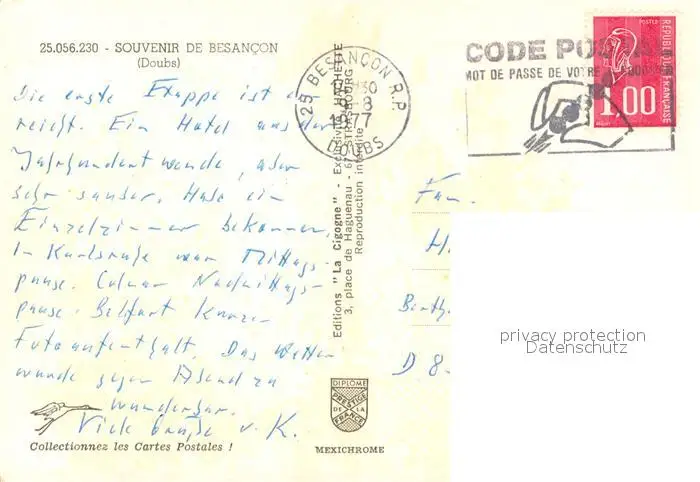 25.056.230 - SOUVENIR DE BESANÇON
(Doubs)
Die erste Etappe ist er
reicht. Ein Hotel aus der
Jahrhundertwende, aber
sehr sauber. Habe ein
Einzelzimmer bekommen.
In Karlsruhe war Mittags-
pause. Colmar Nachmittags-
pause. Belfort kurzer
Fotoaufenthalt. Das Wetter
wurde gegen Abend zu
wunderbar.
Viele Grüße v. K.
Collectionnez les Cartes Postales !
Editions "La Cigogne" - Exclusivité HACHETTE
3, place de Haguenau - 67 STRASBOURG
Reproduction interdite
DIPLOME
PRESTIGE
DE LA
FRANCE
MEXICHROME
25 BESANÇON R.P.
30
-8
1977
DOUBS
CODE POSTAL
MOT DE PASSE DE VOTRE
POSTES
REPUBLIQUE FRANÇAISE
1,00
Fam.
H
Berth
D 8-
privacy protection
Datenschutz